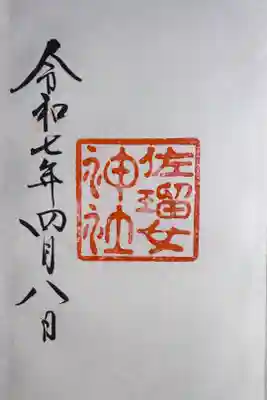 佐瑠女
神社
令和七年四月八日